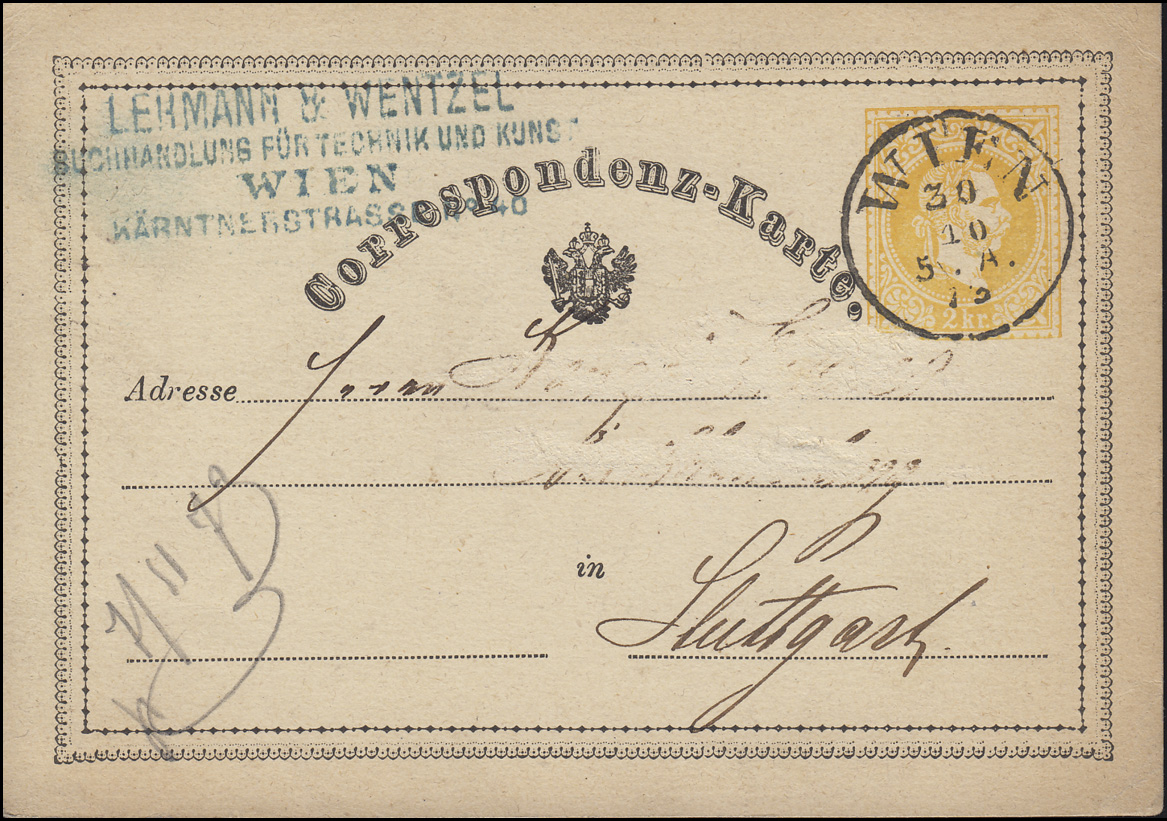 LEHMANN & WENTZEL
BUCHHANDLUNG FÜR TECHNIK UND KUNST
WIEN
KÄRNTNERSTRASSE No 40
Correspondenz-Karte.
WIEN
30
10
5. A.
72
2 kr.
Adresse Herrn
in
Stuttgart.